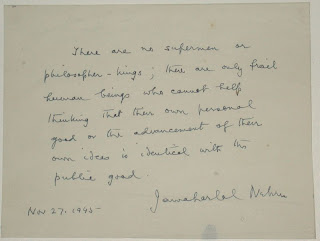 There are no supermen or
philosopher-kings; there are only frail
human beings who cannot help
thinking that their own personal
good or the advancement of their
own ideas is identical with the
public good.
Jawaharlal Nehru
Nov 27. 1945.